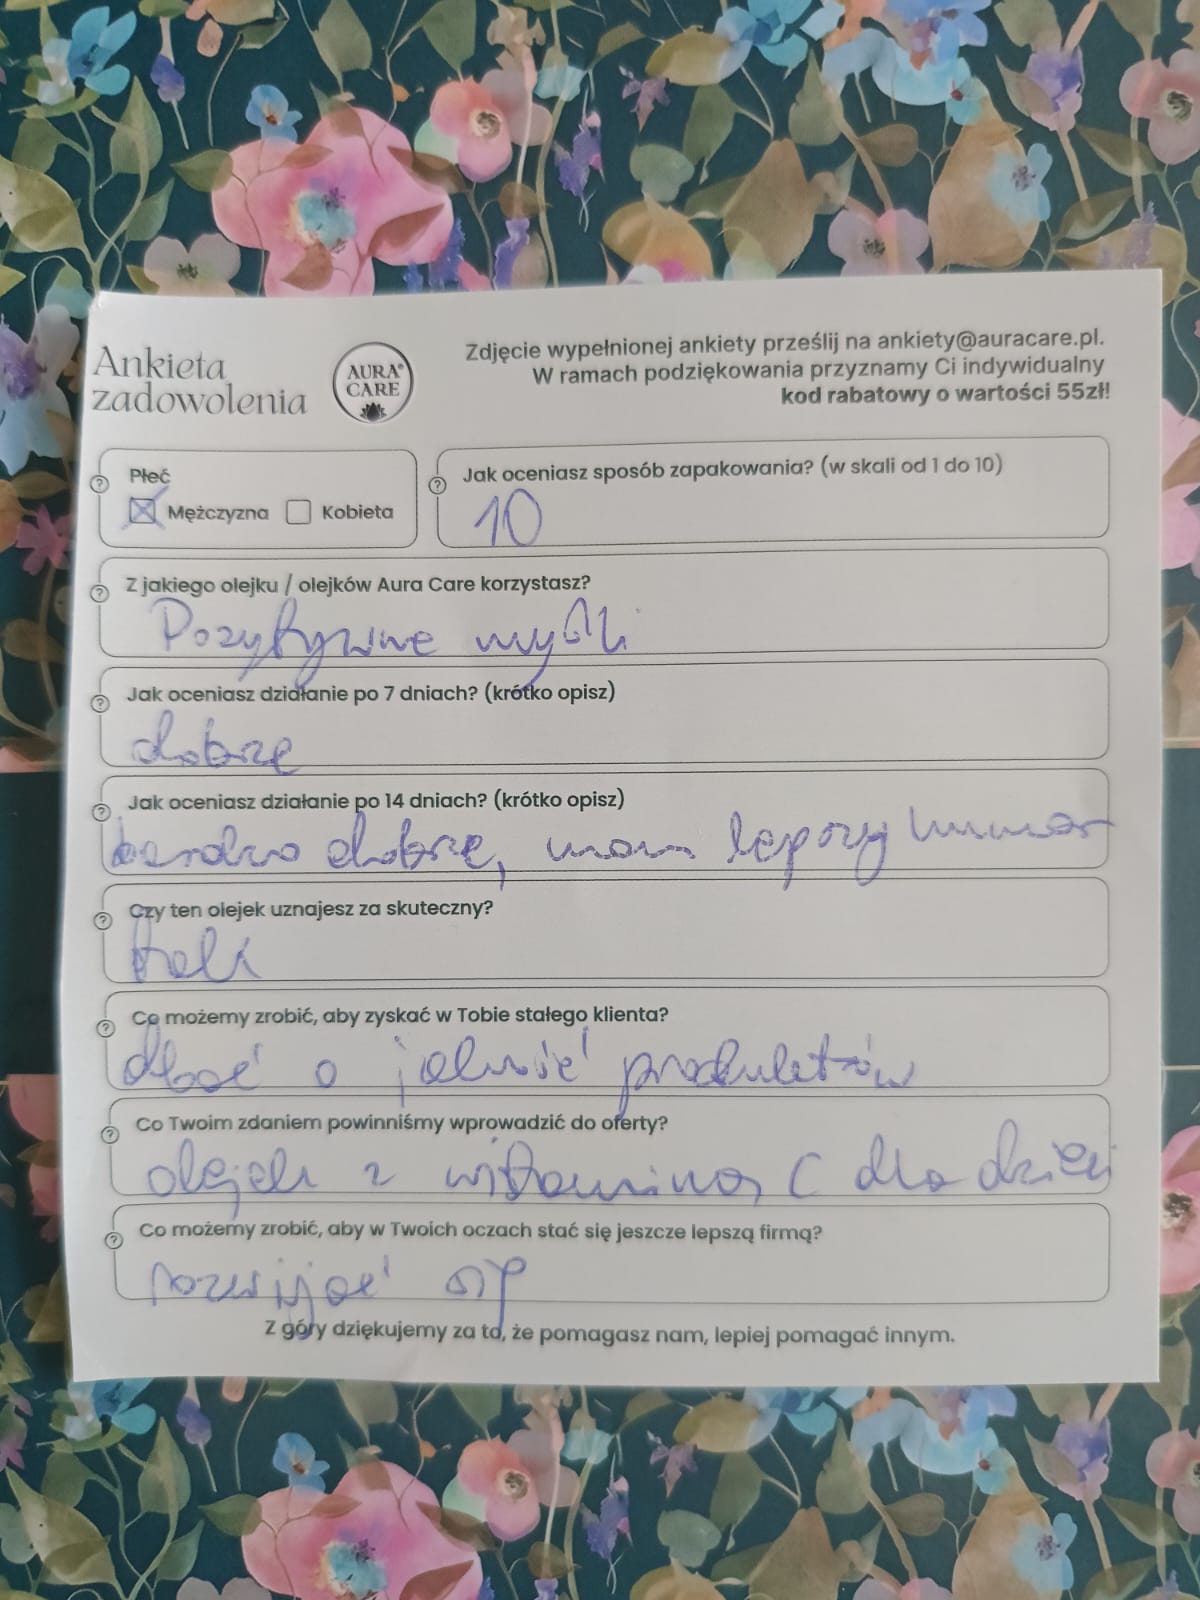 Ankieta
zadowolenia
AURA®
CARE
Zdjęcie wypełnionej ankiety prześlij na ankiety@auracare.pl.
W ramach podziękowania przyznamy Ci indywidualny
kod rabatowy o wartości 55zł!
Płeć
Mężczyzna Kobieta
Jak oceniasz sposób zapakowania? (w skali od 1 do 10)
10
Z jakiego olejku / olejków Aura Care korzystasz?
Pozytywne myśli
Jak oceniasz działanie po 7 dniach? (krótko opisz)
dobrze
Jak oceniasz działanie po 14 dniach? (krótko opisz)
bardzo dobrze, mam lepszy humor
Czy ten olejek uznajesz za skuteczny?
tak
Co możemy zrobić, aby zyskać w Tobie stałego klienta?
dbać o jakość produktów
Co Twoim zdaniem powinniśmy wprowadzić do oferty?
olejek z witaminą C dla dzieci
Co możemy zrobić, aby w Twoich oczach stać się jeszcze lepszą firmą?
rozwijać się
Z góry dziękujemy za to, że pomagasz nam, lepiej pomagać innym.